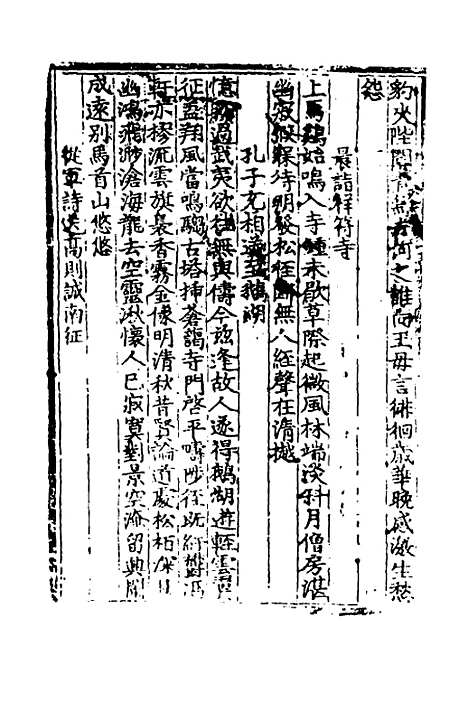 豹火陛閽青鳥何之誰向王母言徘徊歲華晚感激生愁
怨
晨詣祥符寺
上馬鷄始鳴入寺鐘未歇草際起微風林端淡斜月僧房湛
幽寂假寐待明發松徑斷無人經聲在清樾
孔子充相遇至鵝湖
憶昨過武夷欲往無與儔今茲逢故人遂得鵝湖遊輕雲
征蓋翔風當鳴騶古塔揷蒼靄寺門啓平疇陟徑既紆鬱馮
軒亦樛流雲旗裊香霧金像明清秋昔賢論道處松柏
幽鴻飛渺滄海龍去空靈湫懷人已寂寞對景空淹留興闌
成遠別馬首山悠悠
從軍詩送高則誠南征